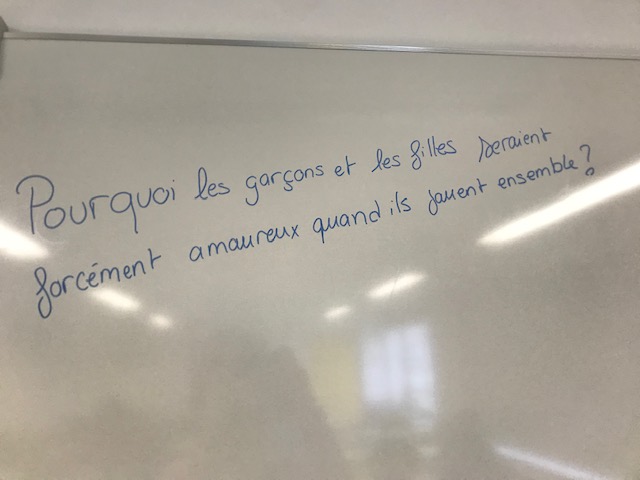 Pourquoi les garçons et les filles seraient
forcément amoureux quand ils jouent ensemble?